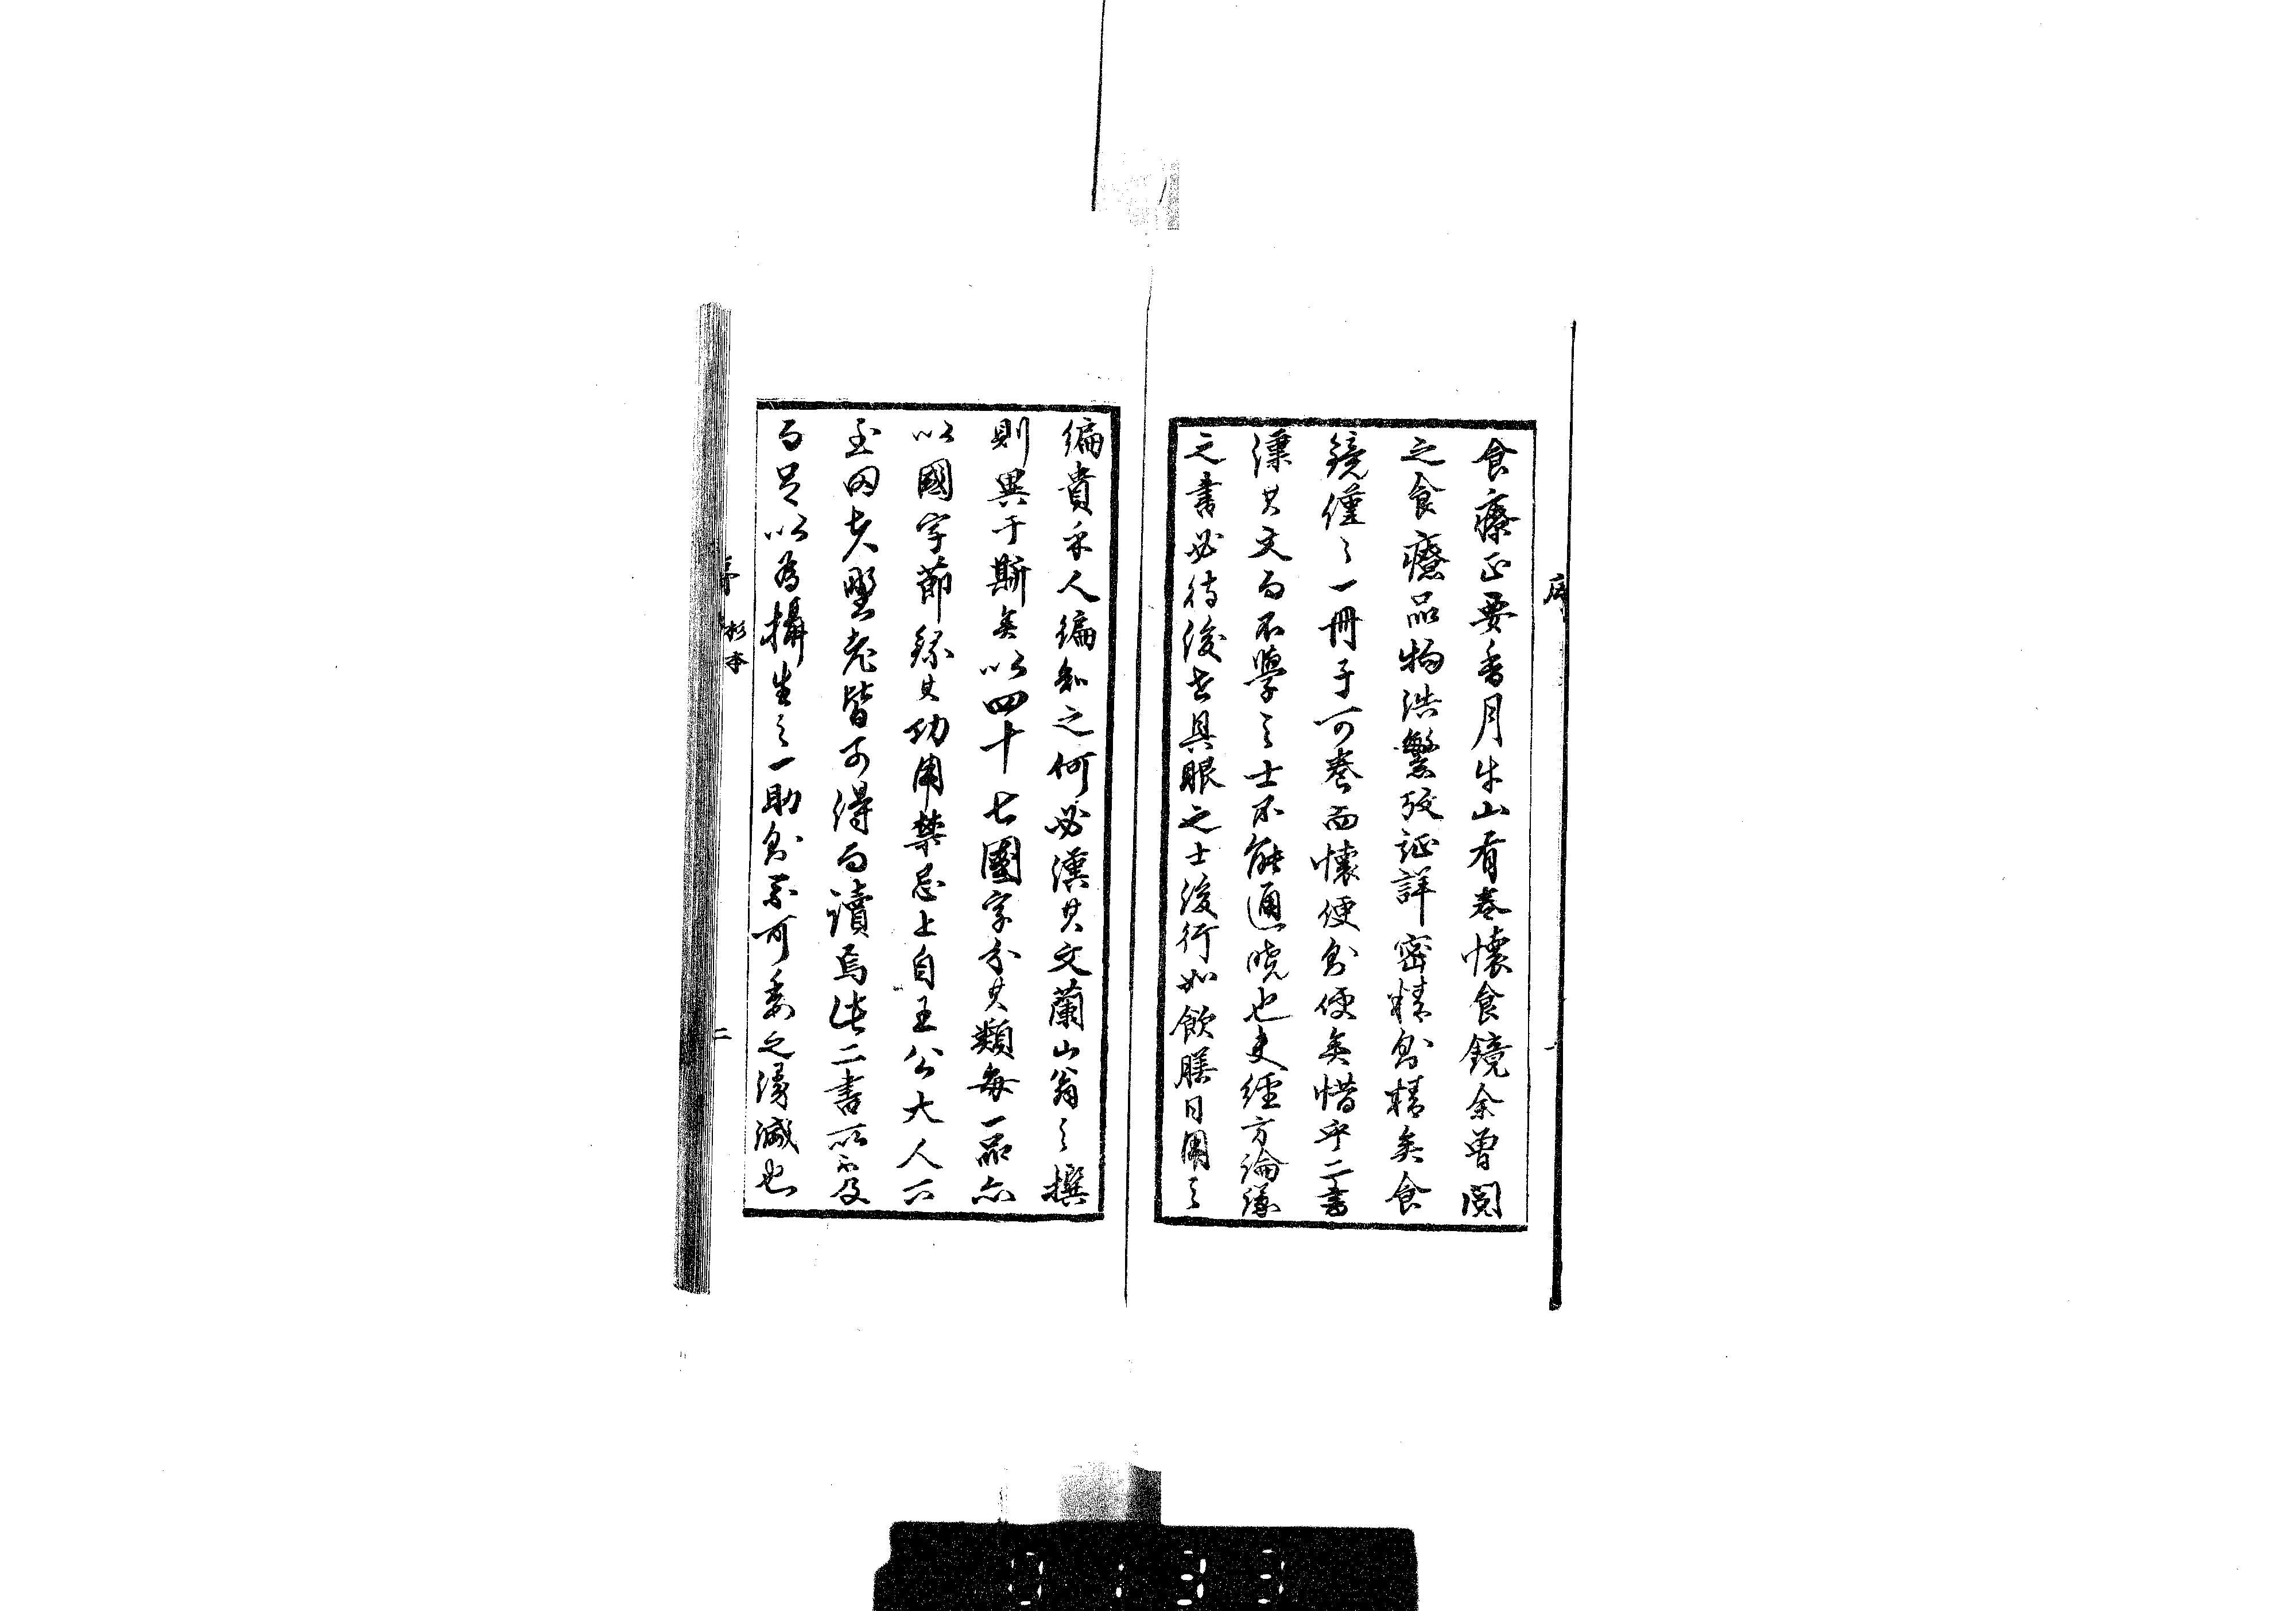 食療正要香月牛山有卷懷食鏡余曾閲
之食療品物浩繁攷証詳密精則精矣食
鏡僅〻一冊子可卷而懷便則便矣惜乎二書
漢其文而不學之士不能通曉也夫經方論議
之書必待後世具眼之士後行如飲膳日用之
編貴乎人編知之何必漢其文蘭山翁之撰
則異于斯矣以四十七國字分其類每一品亦
以國字節錄其功用禁忌上自王公大人下
至田夫野老皆可得而讀焉此二書所不及
而足以為攝生之一助則不可委之湮滅也
序
一
序
杉本
二